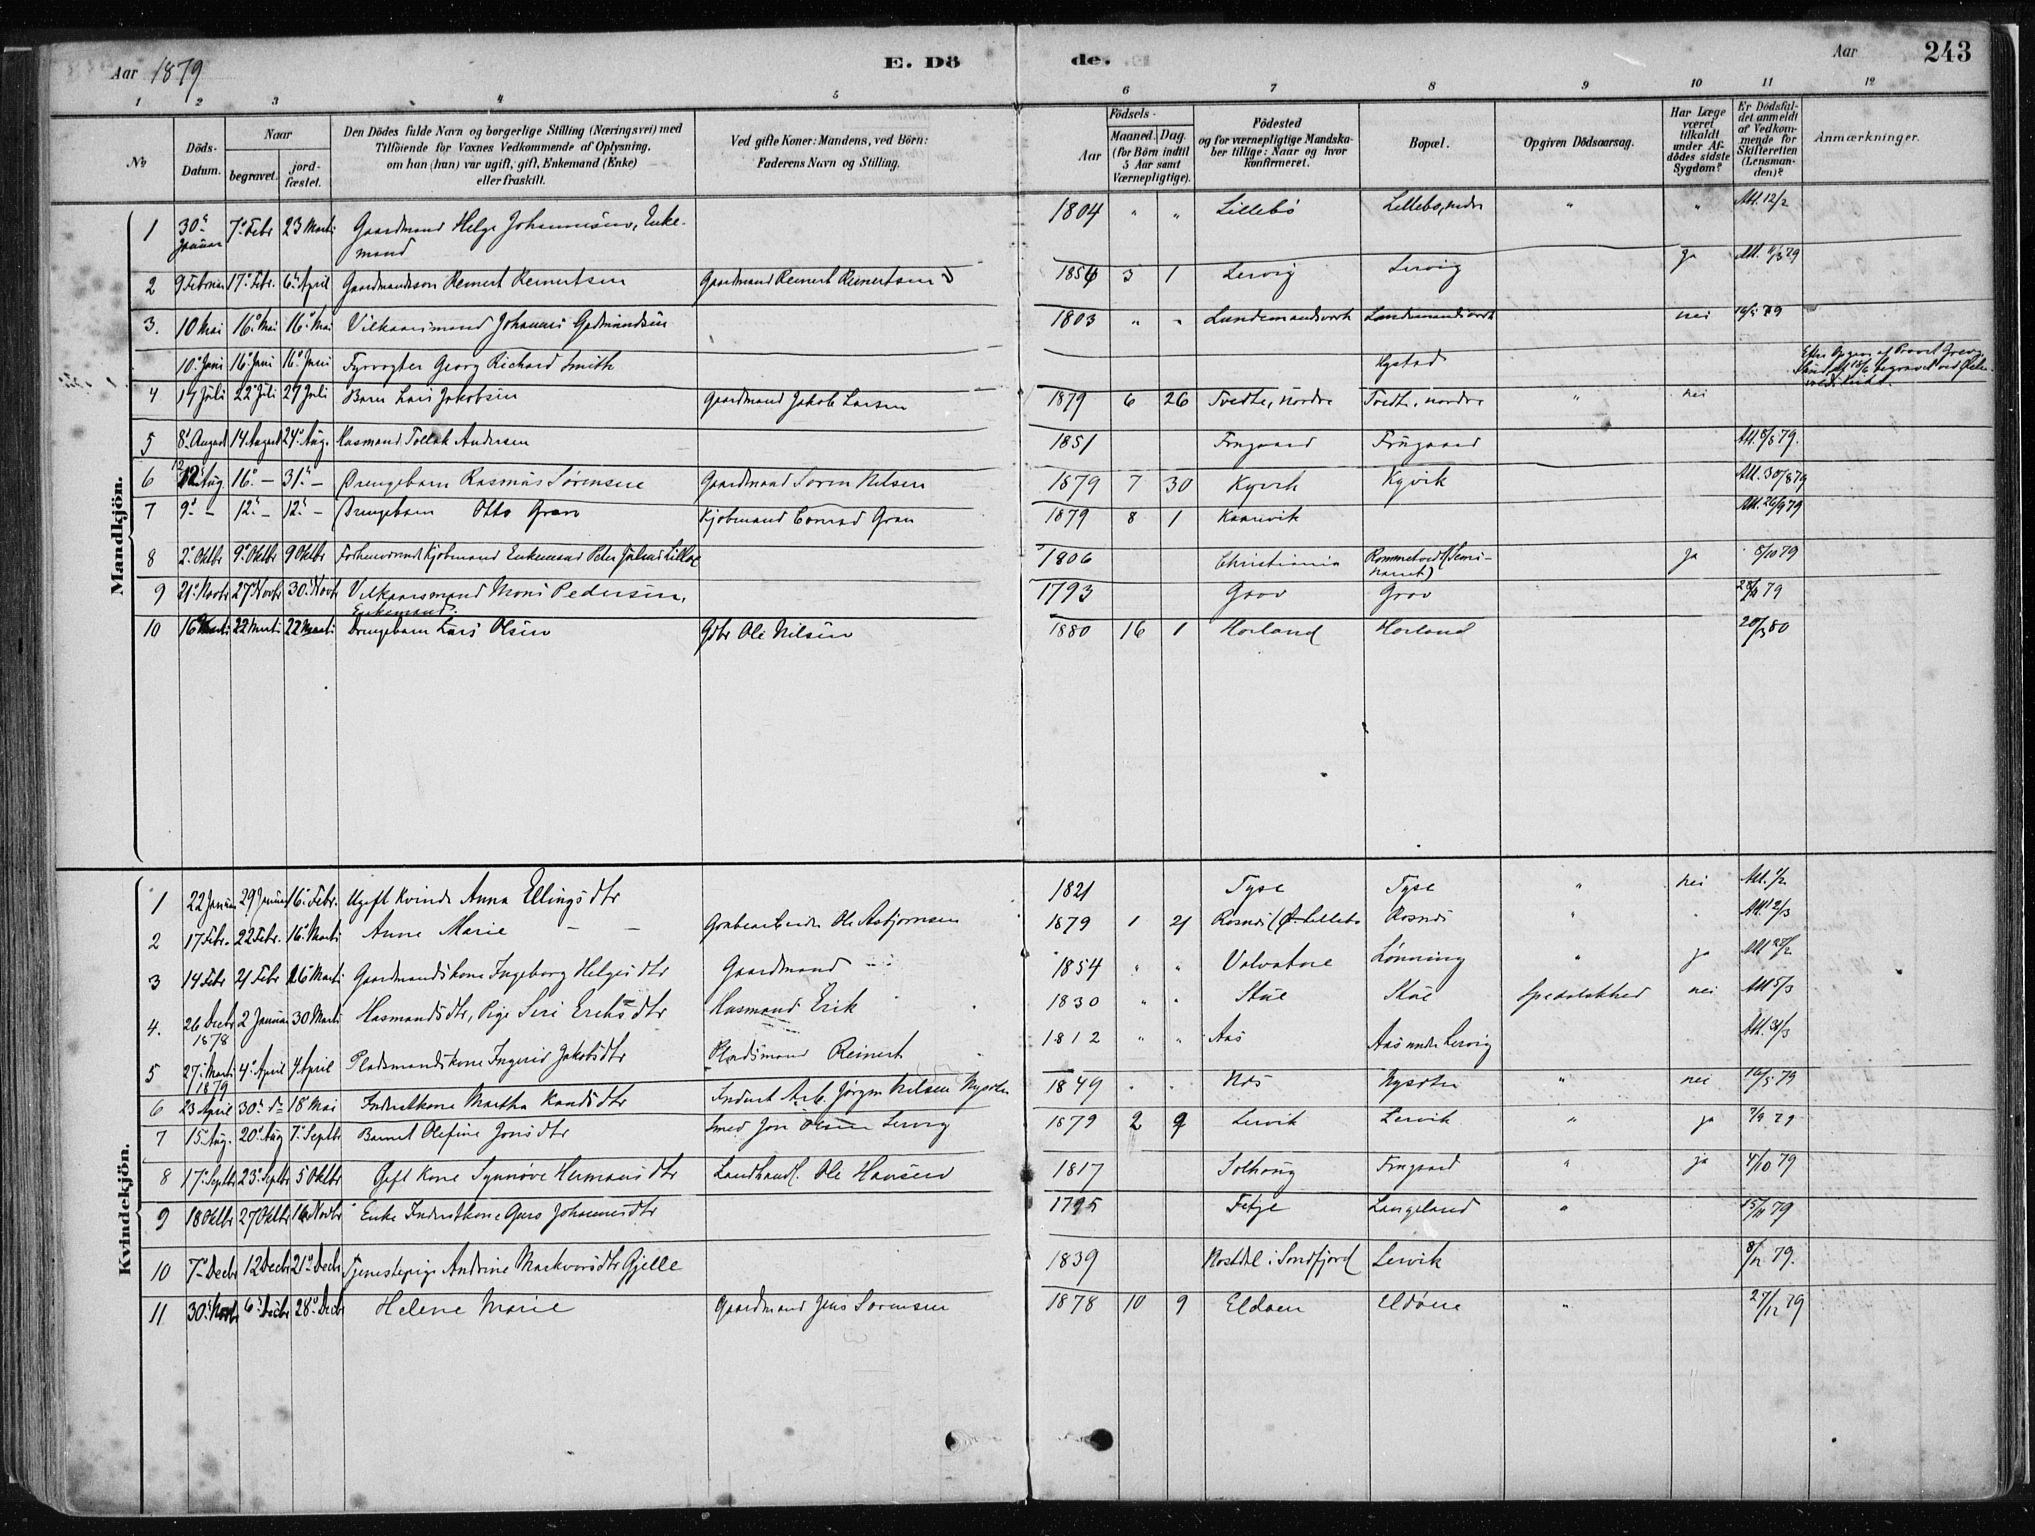 Aar 1879 E. Dö de. Aar 243
1 2 3 4 5 6 7 8 9 10 11 12
No Döds-Datum. Naar begravet. jord-fæstet. Den Dödes fulde Navn og borgerlige Stilling (Næringsvei) med Tilföiende for Voxnes Vedkommende af Oplysning, om han (hun) var ugift, gift, Enkemand (Enke) eller fraskilt. Ved gifte Koner: Mandens, ved Börn: Faderens Navn og Stilling. Födsels- Aar Maaned. Dag. (for Börn indtil 5 Aar samt Værnepligtige). Födested og for værnepligtige Mandskaber tillige: Naar og hvor konfirmeret. Bopæl. Opgiven Dödsaarsag. Har Læge været tilkaldt under Afdödes sidste Sygdom? Er Dödsfaldet anmeldt af Vedkommende for Skifteretten (Lensmanden)? Anmærkninger.
Mandkjön.
1 30 Januar 7 Febr 23 Marts Gaardmand Helge Johannesen, Enke- 1804 " " Lillebö Lillebö, nedre " " Att. 12/2
mand
2 9 Februar 17 Febr. 6 April Gaardmandssön Reinert Reinertsen Gaardmand Reinert Reinertsen 1856 3 1 Lervig Lervig ja Att. 4/3 79
3. 10 Mai 16 Mai 16 Mai Vilkaarsmand Johannes Gudmundsen 1803 " " Lundemandsverk Lundemandsverk nei 16/5 79
10 Juni 16 Juni 16 Juni Fyrvogter Georg Richard Smith Hystad
4 14 Juli 22 Juli 27 Juli Barn Lars Jakobsen Gaardmand Jakob Larsen 1879 6 26 Tvedte, nordre Tvedte, nordre " nei
5 8 August 14 August 24 Aug. Husmand Tollak Andersen 1851 Frugaard Frugaard Att. 8/8 79.
6 12 Aug 16 - 31 - Drengebarn Rasmus Sørensen Gaardmand Søren Nilsen 1879 7 30 Kyvik Kyvik Att. 30/8 79
7 9 - 12 - 12 - Drengebarn Otto Gran Kjöbmand Conrad Gran 1879 8 1 Kaarevik Att. 26/9 79
8 2 Oktbr 9 Oktbr 9 Oktbr Forhenværende Kjöbmand Enkemand Peter Julius Lilloe 1806 Christiania Rommetvedt (Semi- ja 8/10 79
naret)
9 21 Novbr 27 Novbr 30 Novbr Vilkaarsmand Mons Pedersen, 1793 Grov Grov 79
Enkemand.
10 16 Marts 22 Marts 22 Marts Drengebarn Lars Olsen Gdbr Ole Nilsen 1880 16 1 Horland Horland 20/3 80
Kvindekjön.
1 22 Januar 29 Januar 16 Febr. Ugift Kvinde Anna Ellingsdtr 1821 Tyse Tyse " nei Att.
2 17 Febr. 22 Febr. 16 Marts Anne Marie - - Ole Asbjørnsen 1879 1 21 Rosnes Rosnes " Att 12/3
3 14 Febr 21 Febr 16 Marts Gaardmandskone Ingeborg Helgesdtr Gaardmand 1854 " " Valvatne Lönning " ja Att
4. 26 Decbr 2 Januar 30 Marts Husmandsdtr, Pige Siri Eriksdtr Husmand Erik 1830 " " Stue Stue Spedalskhed nei Att 5/3
1878
5 27 Marts 4 April 4 April Pladsmandskone Ingerid Jakobsdtr Pladsmand Reinert 1812 " " Aas Aas under Lervig Att. 31/3
1879
6 23 April 30 d 18 Mai Inderstkone Martha Knudsdtr Inderst Arb. Jørgen Nilsen 1849 Nes " nei 16/5 79
7 15 Aug. 20 Aug 7 Septbr Barnet Olefine Jonsdtr Smed Jon Olsen Lervig 1879 2 9 Lervik Lervik " ja 7/9 79
8 17 Septbr 23 Septbr 5 Oktbr Gift Kone Synnöve Hermansdtr Landhandl. Ole Hansen 1817 Solhoug Frugaard " ja 4/10 79
9 18 Oktbr 27 Oktbr 16 Novbr Enke Inderstkone Guro Johannesdtr 1795 Fitje Langeland " 79
10 7 Decbr 12 Decbr 21 Decbr Tjenestepige Andrine Markvorsdtr Gjelle 1839 i Søndfjord Lervik 8/12 79.
11 30 Novbr 6 Decbr 28 Decbr Helene Marie Gaardmand Jens Sørensen 1878 10 9 Eldøen Eldøen " 27/12 79